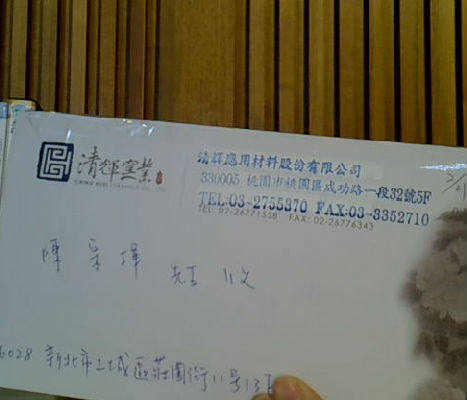 清輝窯業
清輝應用材料股份有限公司
330005 桃園市桃園區成功路一段32號5F
TEL:03-2755370 FAX:03-3352710
TEL: 02-26771558 FAX: 02-26776343
陳 采 先生 收
新北市土城區莊園街11号13F